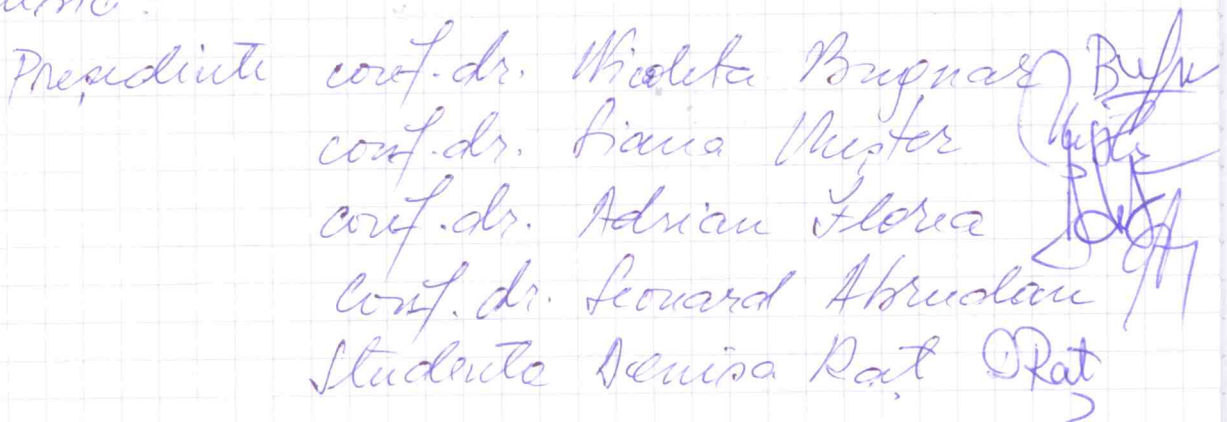 Președinte conf. dr. Nicoleta Bugnar
conf. dr. Liana Muștea
conf. dr. Adrian Florea
conf. dr. Leonard Abrudan
Studenta Denisa Raț DRaț